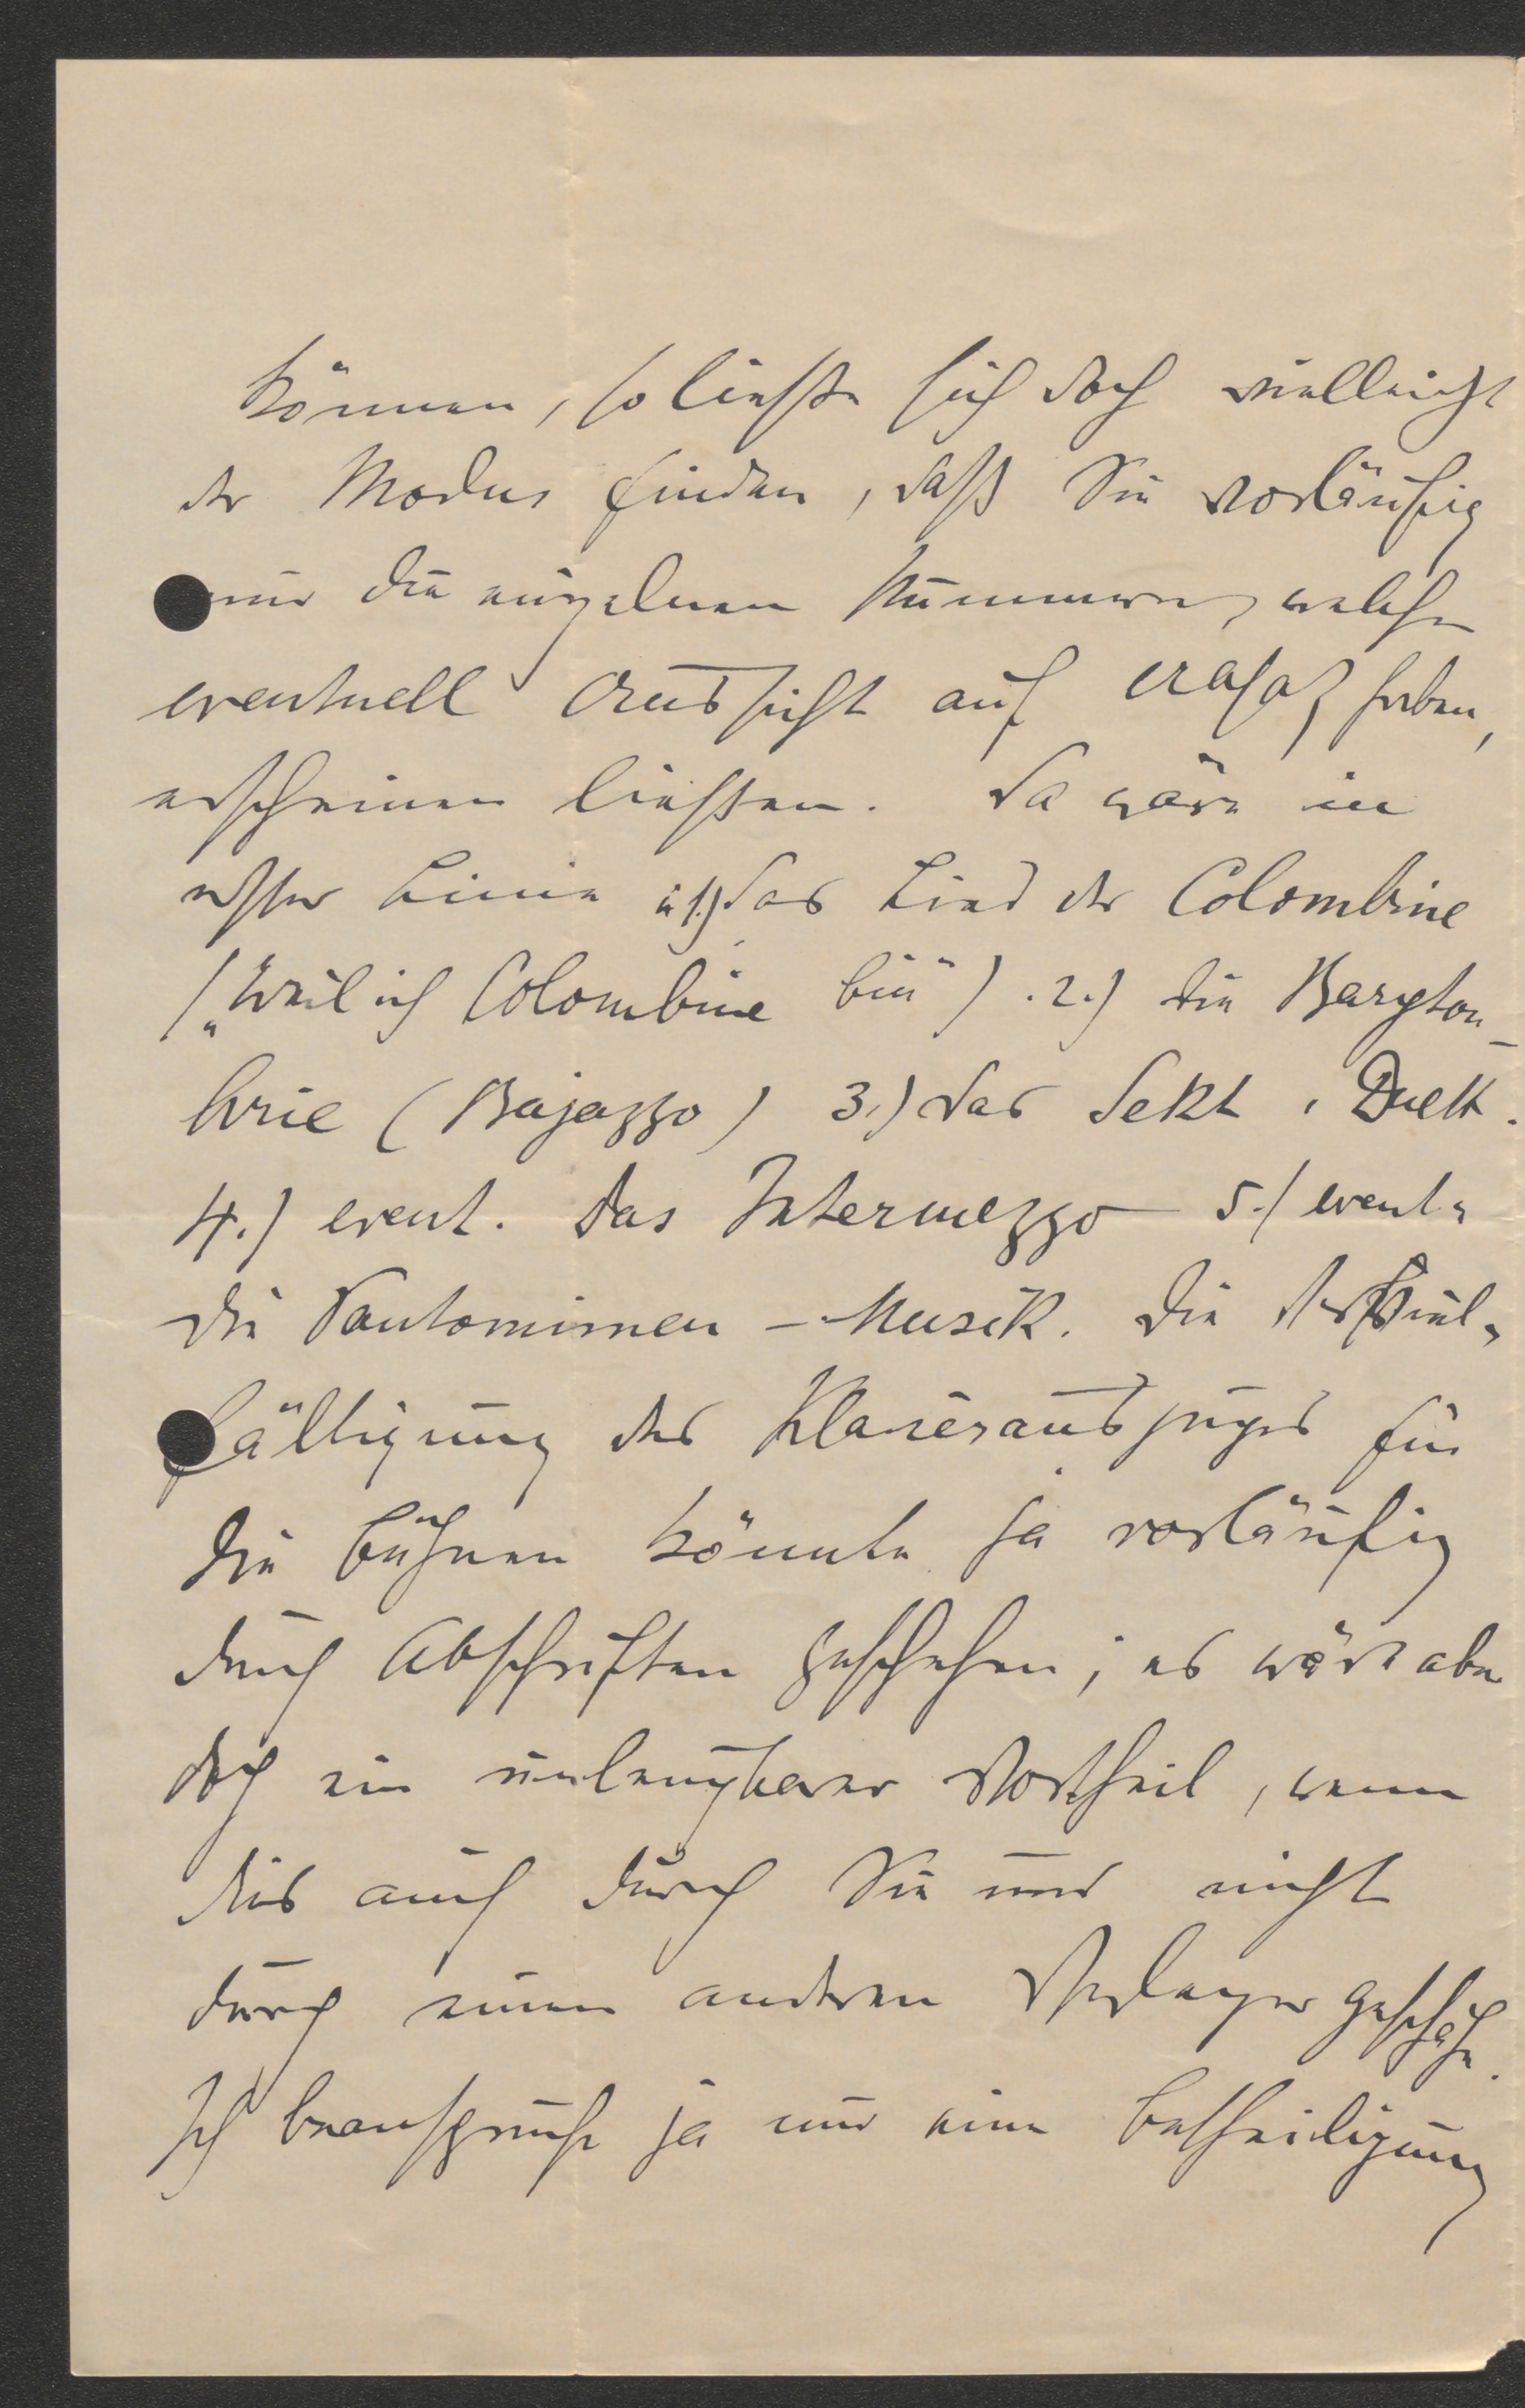 können, so ließe sich doch vielleicht
der Modus finden, daß Sie vorläufig
nur die einzelnen Nummern, welche
eventuell Aussicht auf Absatz haben,
erscheinen ließen. Da wäre in
erster Linie 1.) das Lied der Colombine
(„Weil ich Colombine bin“). 2.) die Baryton-
Arie (Bajazzo) 3.) das Sekt-Duett.
4.) event. das Intermezzo 5.) event.
die Pantomimen-Musik. Die Verviel-
fältigung des Klavierauszuges für
die Bühnen könnte ja vorläufig
durch Abschriften geschehen; es wäre aber
doch ein unleugbarer Vortheil, wenn
dies auch durch Sie und nicht
durch einen anderen Verleger geschähe.
Ich beanspruche ja nur eine Betheiligung